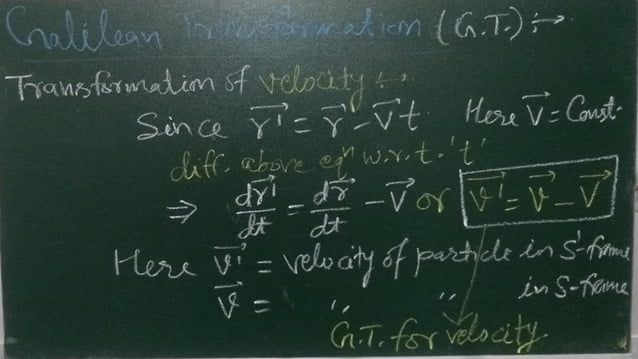 Galilean Transformation (G.T.) :→
Transformation of velocity :→
Since r⃗' = r⃗ - V⃗t Here V⃗ = Const.
diff. above eqⁿ w.r.t. 't'
⇒ dr⃗'/dt = dr⃗/dt - V⃗ or v⃗' = v⃗ - V⃗
Here v⃗' = velocity of particle in S'-frame
v⃗ = " " in S-frame
G.T. for velocity